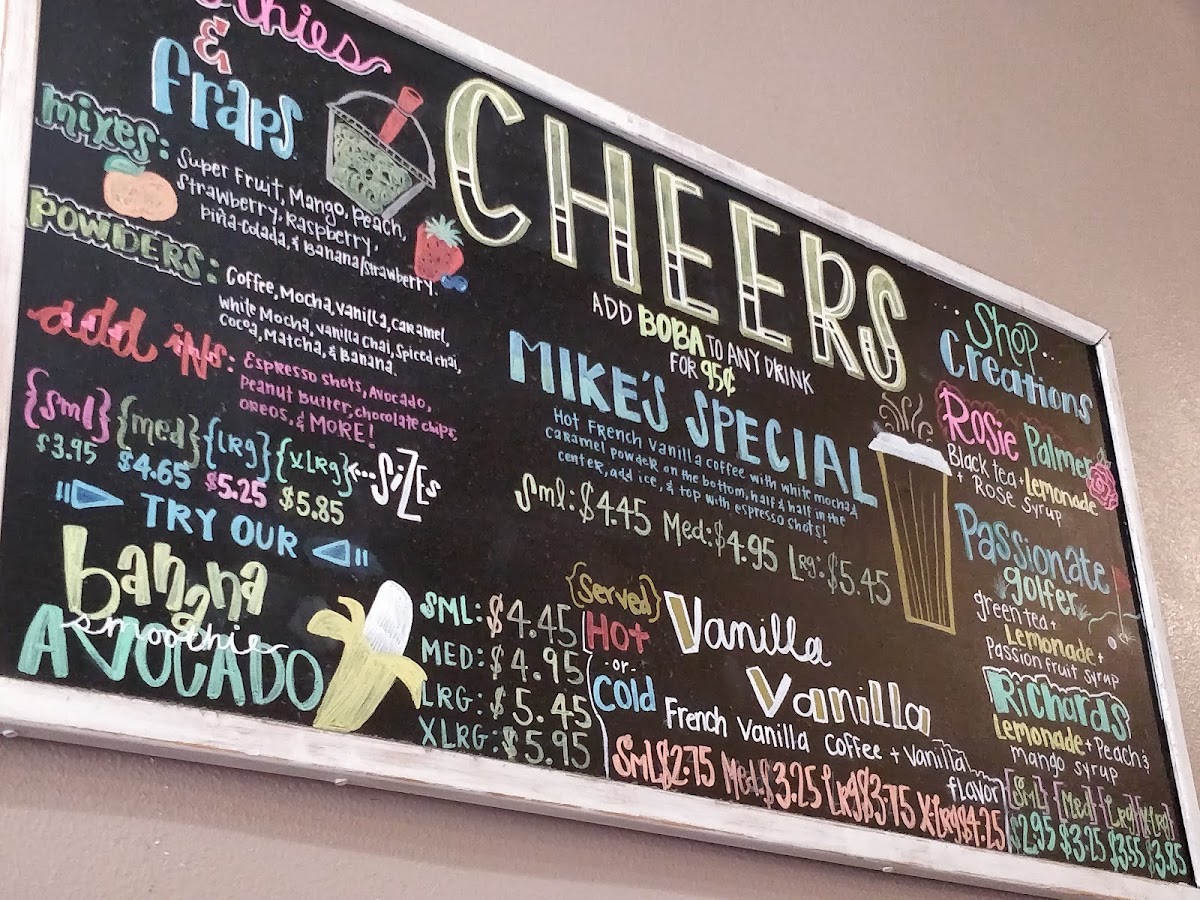 & Fraps
Mixes: Super Fruit, Mango, Peach,
Strawberry, Raspberry,
Piña-Colada, & Banana/Strawberry.
Powders: Coffee, Mocha, Vanilla, Caramel,
White Mocha, Vanilla Chai, Spiced Chai,
Cocoa, Matcha, & Banana.
add ins: Espresso shots, Avocado,
Peanut Butter, chocolate chips,
Oreos, & MORE!
{sml} {med} {lrg} {xlrg} <--- SiZEs
$3.95 $4.65 $5.25 $5.85
TRY OUR
banana
AVOCADO
smoothie
SML: $4.45
MED: $4.95
LRG: $5.45
XLRG: $5.95
CHEERS
ADD BOBA TO ANY DRINK
FOR 95¢
MIKE'S SPECIAL
Hot French Vanilla coffee with white mocha &
caramel powder on the bottom, half & half in the
center, add ice, & top with espresso shots!
Sml: $4.45 Med: $4.95 Lrg: $5.45
{Served}
Hot
-or-
Cold
Vanilla
Vanilla
French Vanilla Coffee + Vanilla
flavor
Sml $2.75 Med: $3.25 Lrg $3.75 X-Lrg $4.25
Shop
Creations
Rosie Palmer
Black tea + Lemonade
+ Rose syrup
Passionate
golfer
green tea +
Lemonade +
Passion fruit syrup
Richards
Lemonade + Peach &
mango syrup
{Sml} {Med} {Lrg} {XLrg}
$2.95 $3.25 $3.55 $3.85